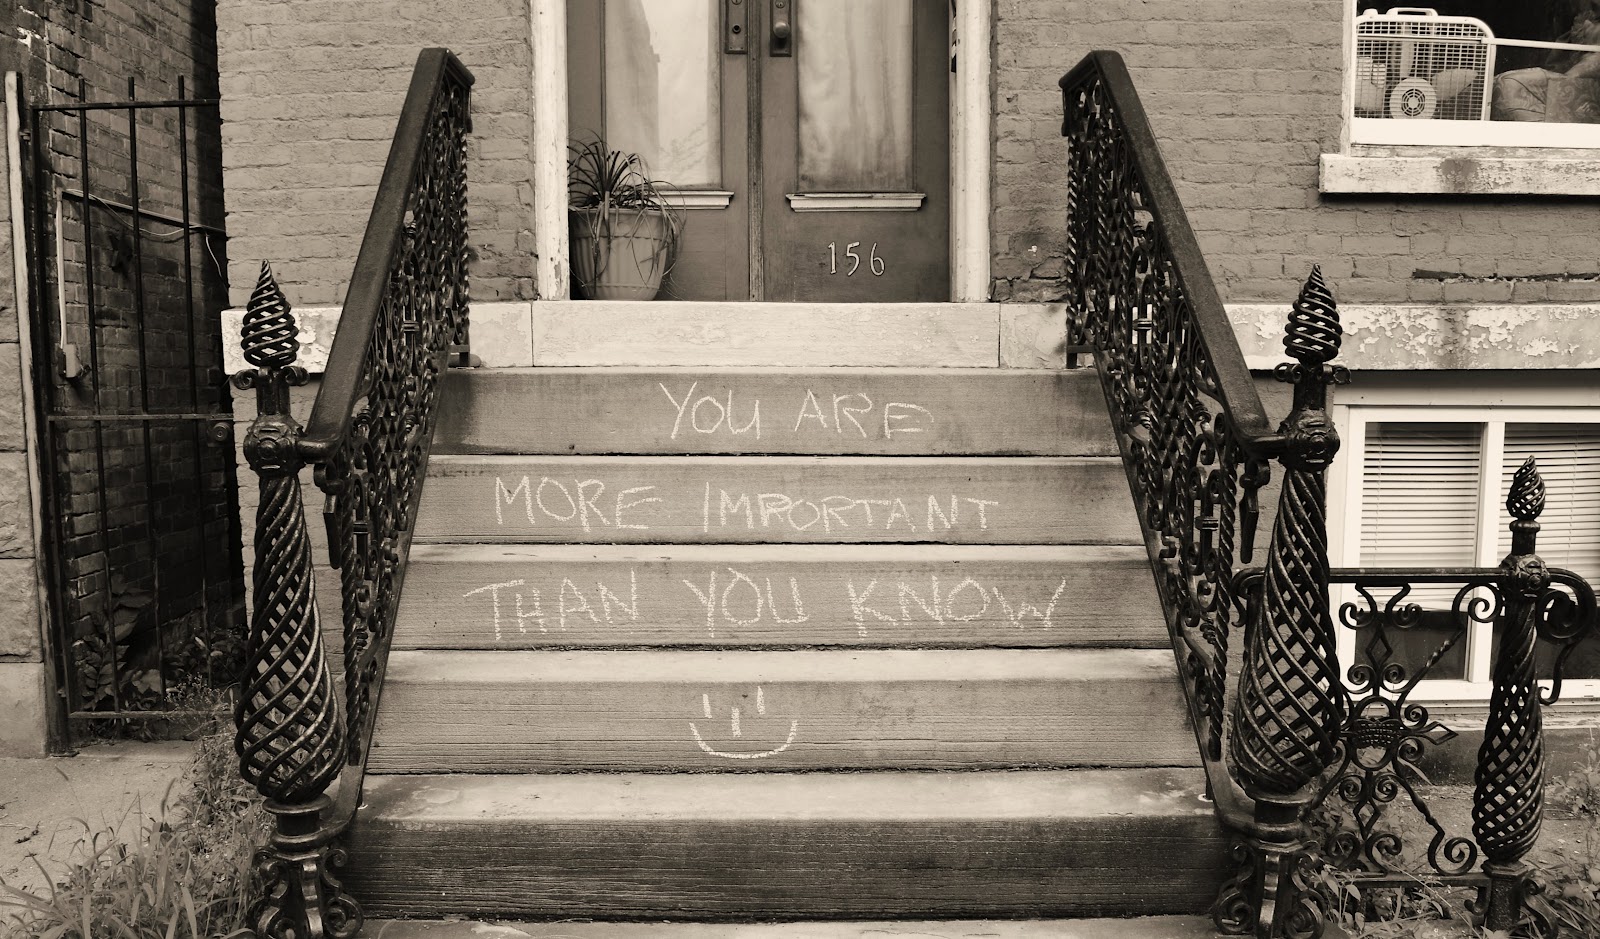 156
YOU ARE
MORE IMPORTANT
THAN YOU KNOW